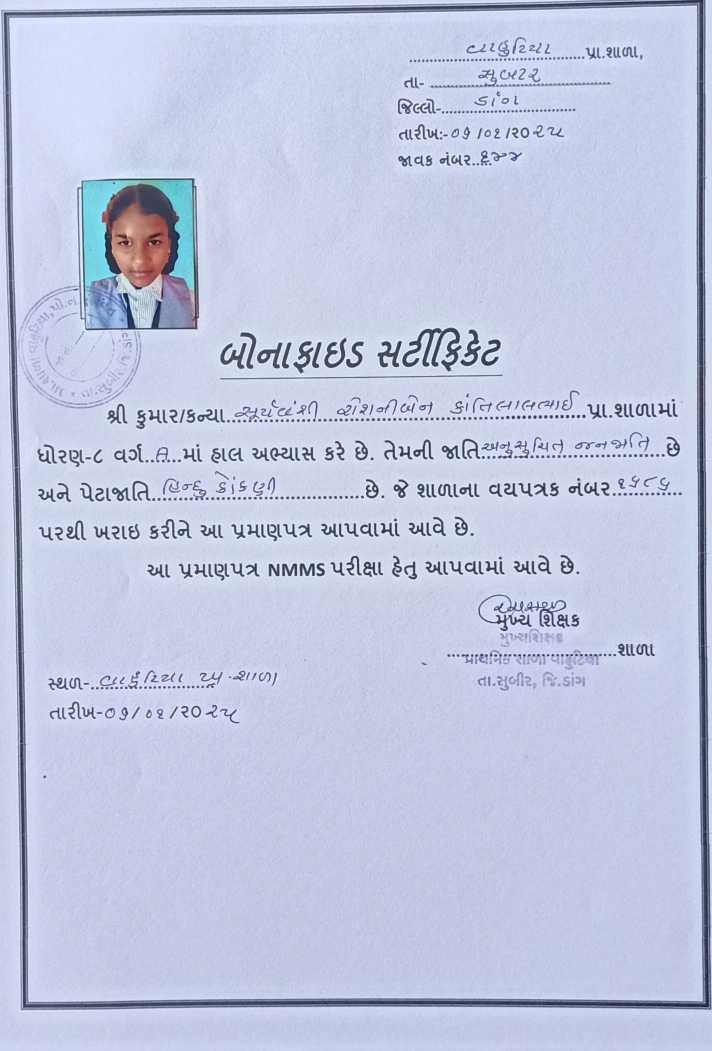 વાહુટિયા પ્રા.શાળા,
તા- સુબીર
જિલ્લો- ડાંગ
તારીખ:-૦૭/૦૧/૨૦૨૫
જાવક નંબર..
બોનાફાઇડ સર્ટીફિકેટ
શ્રી કુમાર/કન્યા સૂર્યવંશી રોશનીબેન કાંતિલાલભાઈ પ્રા.શાળામાં
ધોરણ-૮ વર્ગ..માં હાલ અભ્યાસ કરે છે. તેમની જાતિ અનુસુચિત જનજાતિ છે
અને પેટાજાતિ હિન્દુ કોંકણી છે. જે શાળાના વયપત્રક નંબર
પરથી ખરાઇ કરીને આ પ્રમાણપત્ર આપવામાં આવે છે.
આ પ્રમાણપત્ર NMMS પરીક્ષા હેતુ આપવામાં આવે છે.
મુખ્ય શિક્ષક
મુખ્યશિક્ષક
પ્રાથમિક શાળા વાહુટિયા શાળા
તા.સુબીર, જિ.ડાંગ
સ્થળ- વાહુટિયા પ્રા.શાળા
તારીખ-૦૭/૦૧/૨૦૨૫